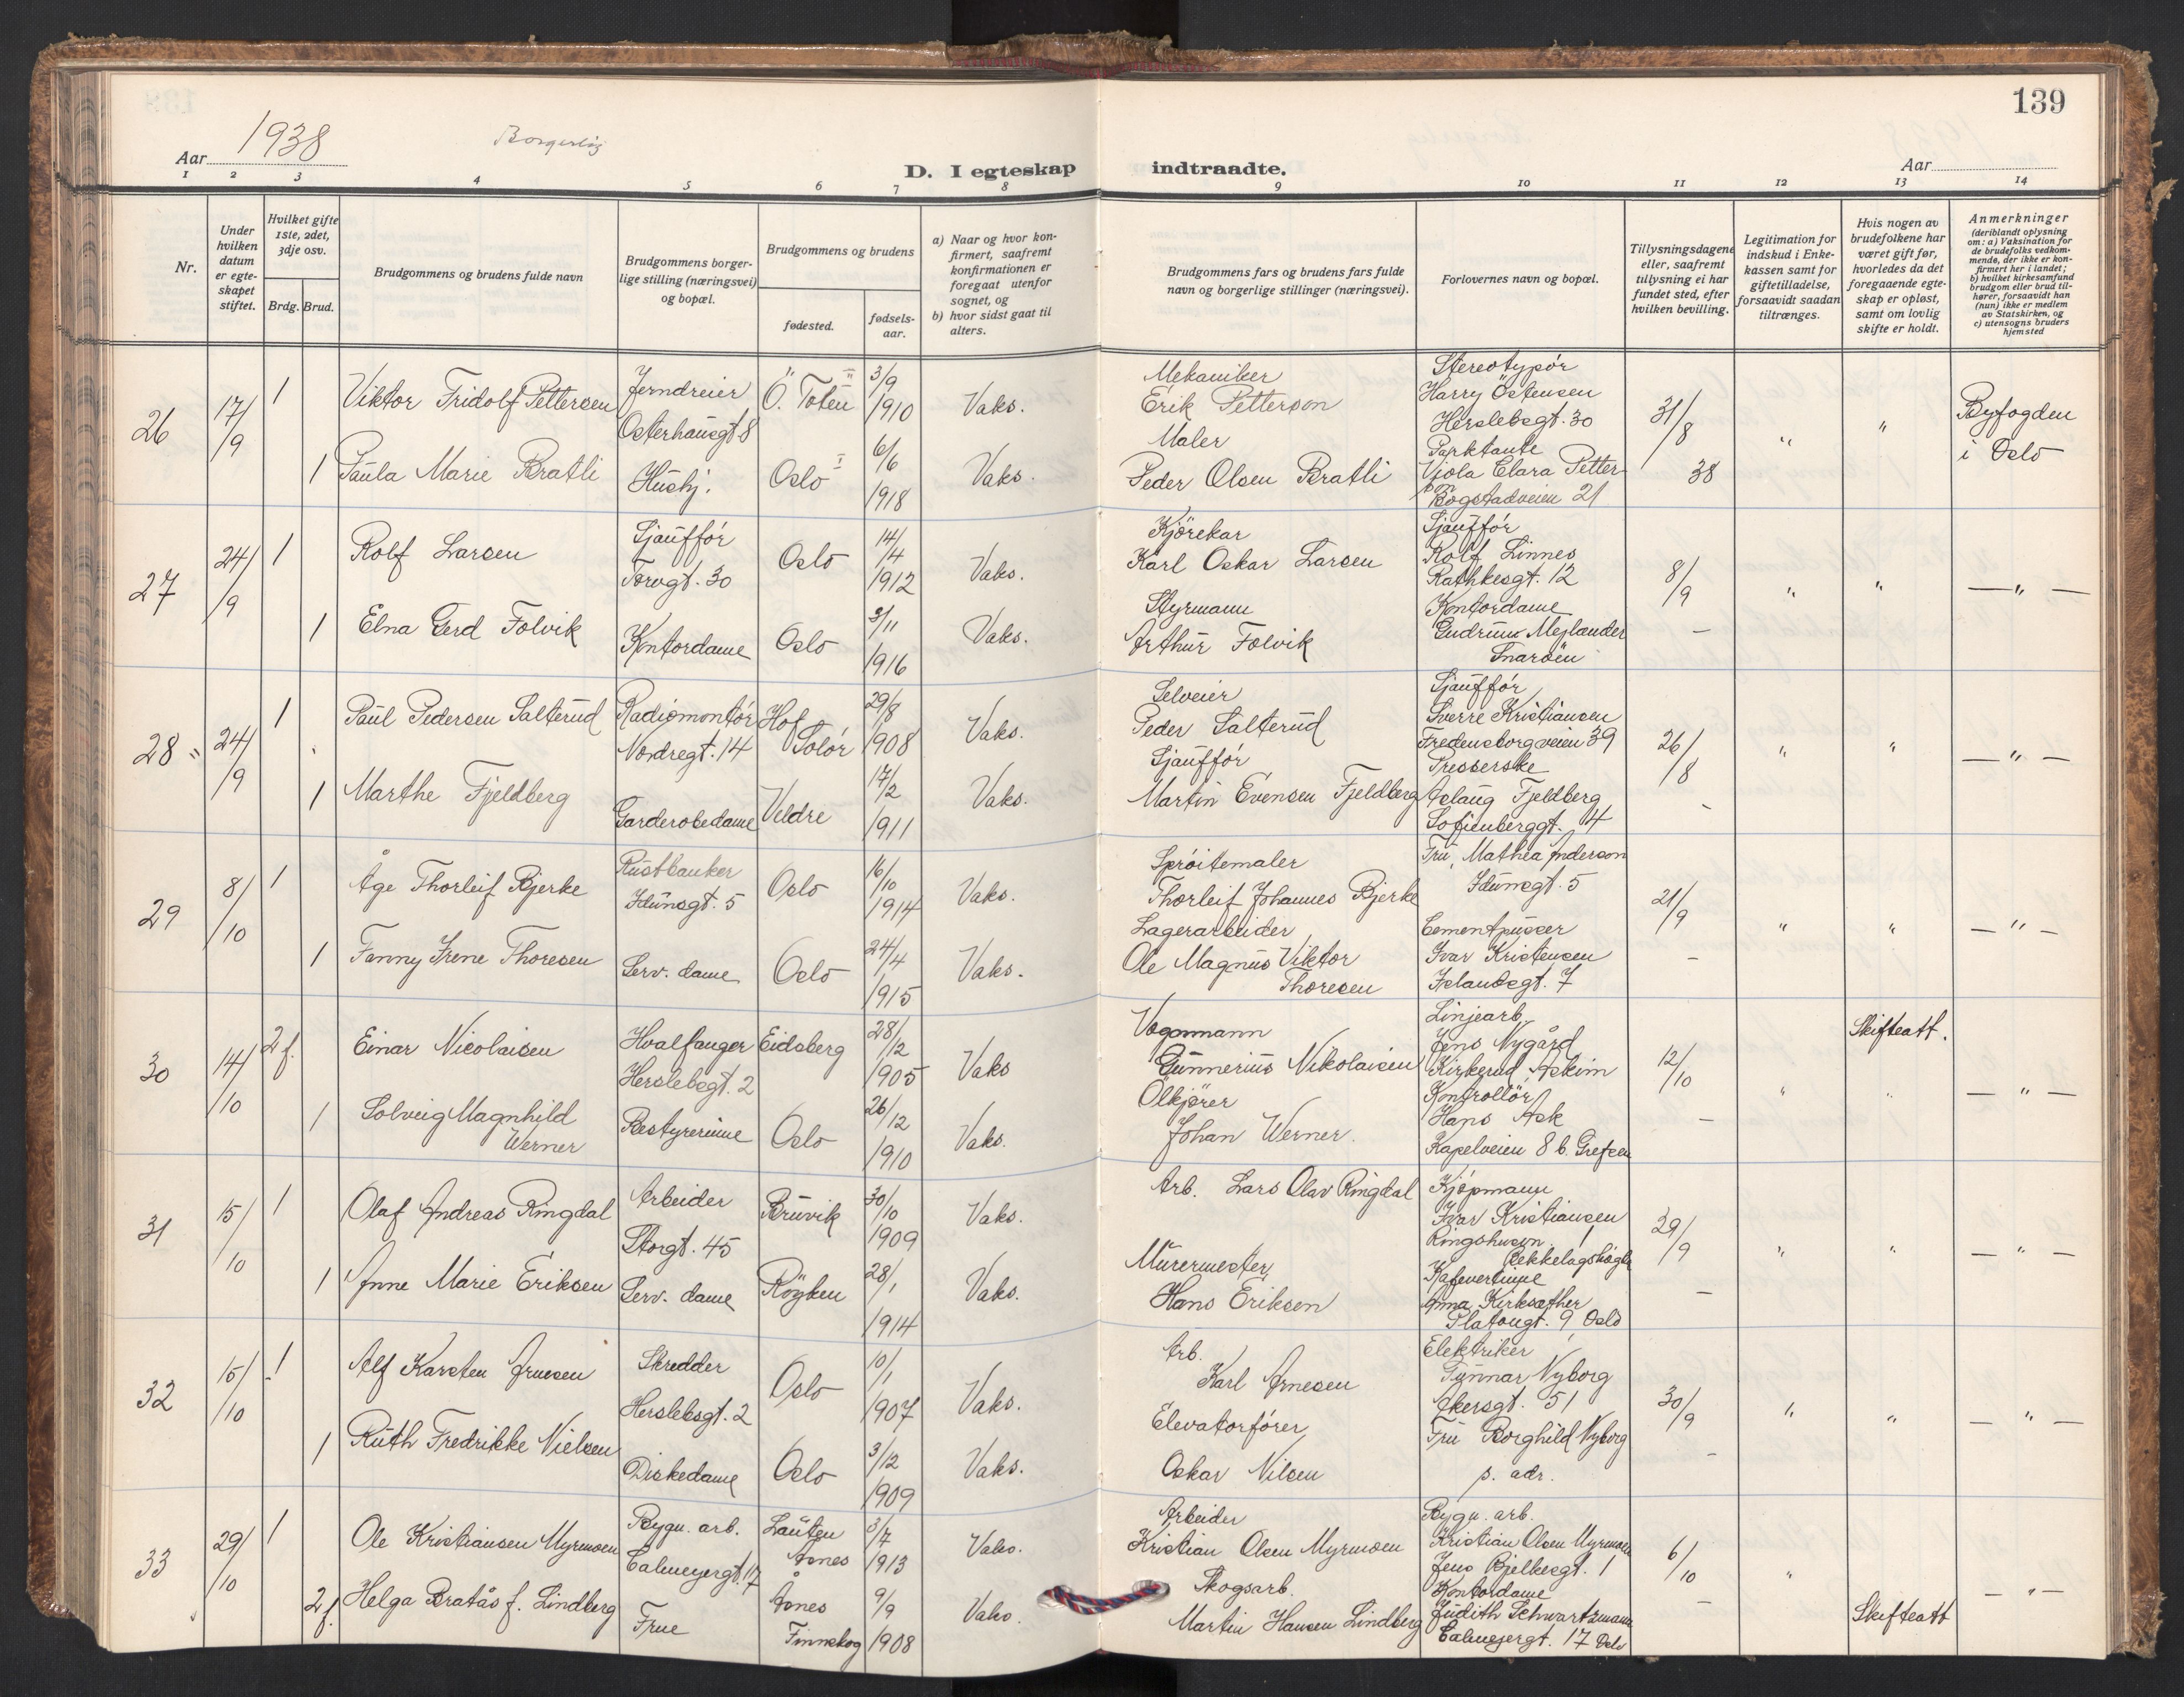 139
Aar 1938
Borgerlig
D. I egteskap indtraadte.
Aar
1 2 3 4 5 6 7 8 9 10 11 12 13 14
Nr.
Under hvilken datum er egte-skapet stiftet.
Hvilket gifte 1ste, 2det, 3dje osv.
Brdg. Brud.
Brudgommens og brudens fulde navn
Brudgommens borger-lige stilling (næringsvei) og bopæl.
Brudgommens og brudens
fødested.
fødsels-aar.
a) Naar og hvor kon-firmert, saafremt konfirmationen er foregaat utenfor sognet, og
b) hvor sidst gaat til alters.
Brudgommens fars og brudens fars fulde navn og borgerlige stillinger (næringsvei).
Forlovernes navn og bopæl.
Tillysningsdagene eller, saafremt tilysning ei har fundet sted, efter hvilken bevilling.
Legitimation for indskud i Enke-kassen samt for giftetilladelse, forsaavidt saadan tiltrænges.
Hvis nogen av brudefolkene har været gift før, hvorledes da det foregaaende egte-skap er opløst, samt om lovlig skifte er holdt.
Anmerkninger
(deriblandt oplysning om: a) Vaksination for de brudefolks vedkom-mende, der ikke er kon-firmert her i landet;
b) hvilket kirkesamfund brudgom eller brud til-hører, forsaavidt han (hun) ikke er medlem av Statskirken, og
c) utensogns bruders hjemsted
26 17/9 1 Viktor Fridolf Pettersen Jerndreier Osterhausgt. 8 Ö. Toten 3/9 1910 Vaks. Mekaniker Erik Petterson Stereotypör Harry Östensen Herslebsgt. 30 31/8 38 " " Byfogden i Oslo
1 Paula Marie Bratli Husbj. Oslo 6/6 1918 Vaks. Maler Peder Olsen Bratli Parktante Vjola Clara Petterson Bogstadveien 21
27 24/9 1 Rolf Larsen Sjauffór Torvgt. 30 Oslo 14/4 1912 Vaks. Kjörekar Karl Oskar Larsen Sjauffór Rolf Linnes Rathkesgt. 12 8/9 - " " — " —
1 Elna Gerd Folvik Kontordame Oslo 3/11 1916 Vaks. Styrmann Arthur Folvik Kontordame Gudrun Mejlænder Snaröen
28 24/9 1 Paul Pedersen Salterud Radiomontör Nordregt. 14 Hof Solör 29/8 1908 Vaks. Selveier Peder Salterud Sjauffór Sverre Kristiansen Fredensborgveien 39 26/8 - " " — " —
1 Marthe Fjeldberg Garderobedame Veldre 17/2 1911 Vaks. Sjauffór Martin Evensen Fjeldberg Presserske Aslaug Fjeldberg Sofienberggt. 4
29 8/10 1 Åge Thorleif Bjerke Rustbanker Idunsgt. 5 Oslo 16/10 1914 Vaks. Spröitemaler Thorleif Johannes Bjerke Fru Mathea Anderson Idunsgt. 5 21/9 - " " — " —
1 Fanny Irene Thoresen Serv. dame Oslo 24/4 1915 Vaks. Lagerarbeider Ole Magnus Viktor Thoresen Cementpusser Ivar Kristensen Islandsgt. 7
30 14/10 2 f. Einar Nicolaisen Hvalfanger Herslebsgt. 2 Eidsberg 28/12 1905 Vaks Vognmann Gunnerius Nikolaisen Linjearb. Jens Nygård Kirkerud Askim 12/10 - " " Skifteatt. — " —
1 Solveig Magnhild Werner Bestyrerinne Oslo 26/12 1910 Vaks. Ölkjörer Johan Werner. Kontrollör Hans Ask Kapelveien 8 b. Grefsen
31 15/10 1 Olaf Andreas Ringdal Arbeider Storgt. 45 Bruvik 30/10 1909 Vaks. Arb. Lars Olav Ringdal Kjöpmann Ivar Kristiansen Ringshusen 1 Bekkelagshøgda 29/9 - " " — " —
1 Anne Marie Eriksen Serv. dame Röyken 28/1 1914 Vaks. Murermester Hans Eriksen Kafevertinne Anna Kirksæther Platougt. 9 Oslo
32 15/10 1 Alf Karsten Arnesen Skredder Herslebsgt. 2 Oslo 10/1 1907 Vaks. Arb. Karl Arnesen Elektriker Gunnar Nyborg Akersgt. 51 30/9 - " " — " —
1 Ruth Fredrikke Nielsen Diskedame Oslo 3/12 1909 Vaks. Elevatorförer Oskar Nilsen Fru Borghild Nyborg s. adr.
33 29/10 1 Ole Kristiansen Myrmoen Bygn. arb. Calmeyergt. 17 Lauten Åsnes 3/7 1913 Vaks. Arbeider Kristian Olsen Myrmoen Bygn. arb. Kristian Olsen Myrmoen Jens Bjelkesgt. 1 6/10 - " — " —
2 f. Helga Bratås f. Lindberg Frue Åsnes Finnskog 9/9 1908 Vaks. Skogsarb. Martin Hansen Lindberg Kontordame Judith Schwartzmann Calmeyergt. 17 Oslo Skifteatt